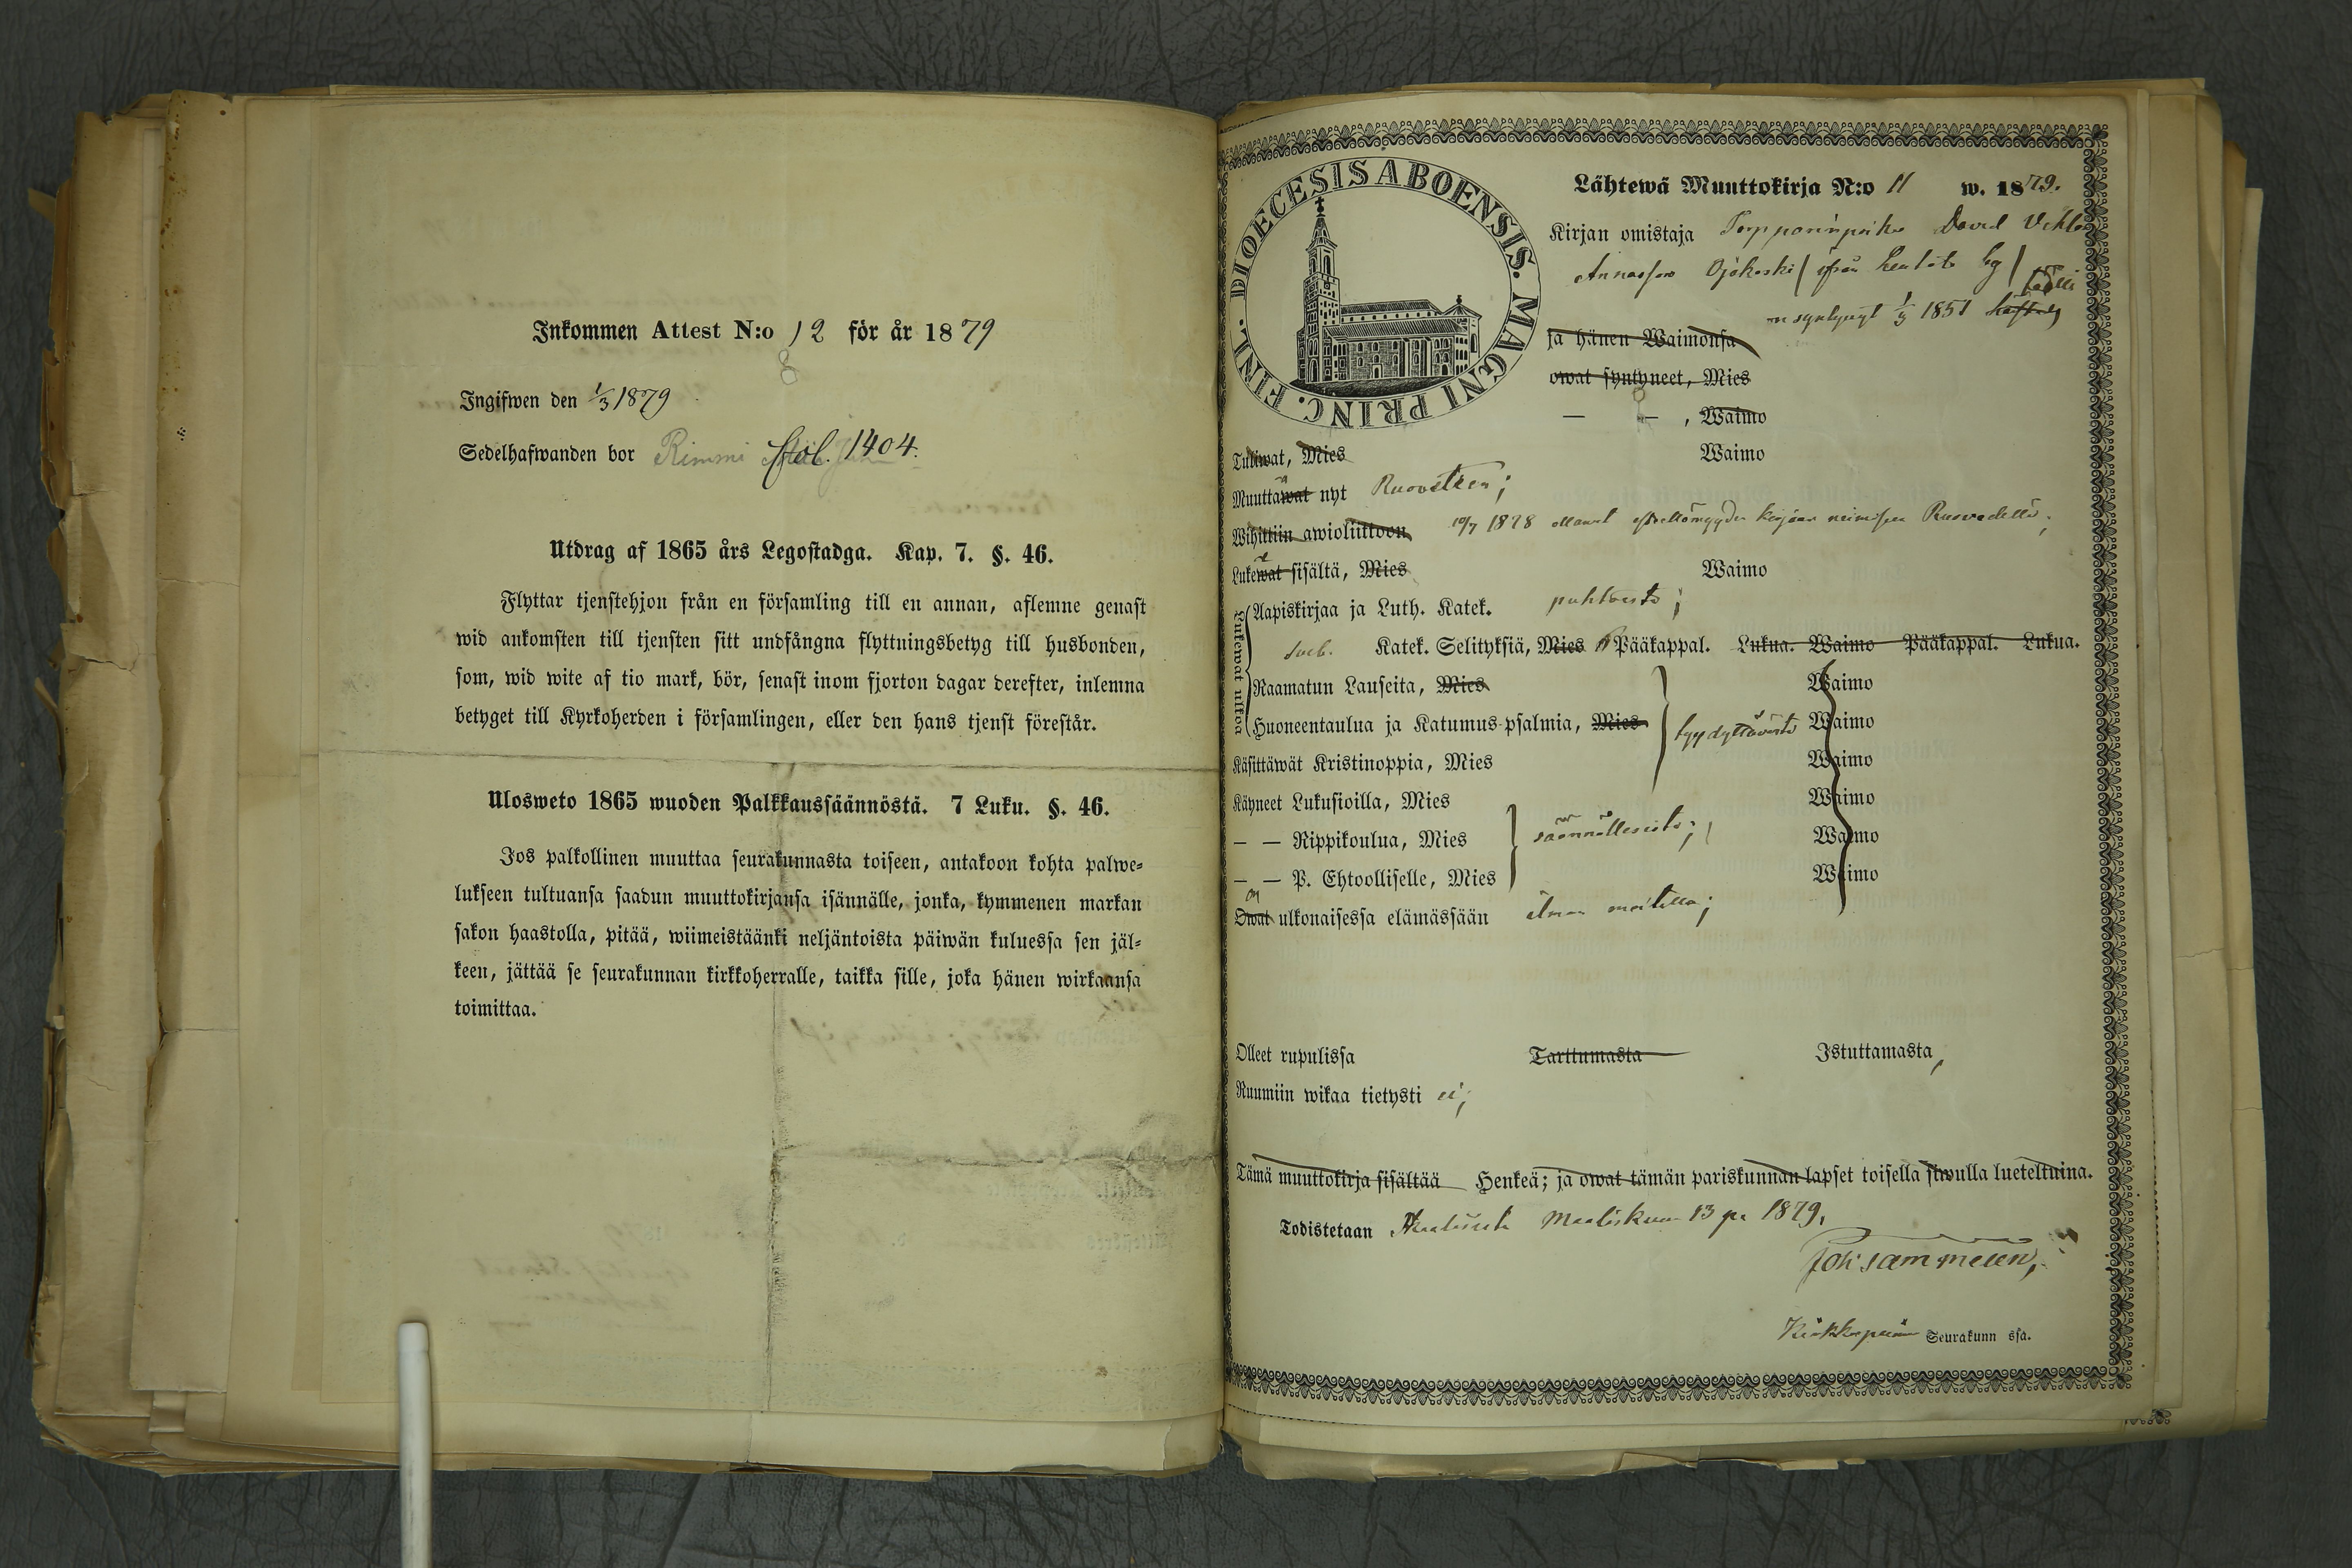 Inkommen Attest N:o 12 för år 1879
Ingifwen den 1/3 1879
Sedelhafwanden bor Rimmi fol. 1404.
Utdrag af 1865 års Legostadga. Kap. 7. §. 46.
Flyttar tjenstehjon från en församling till en annan, aflemne genast
wid ankomsten till tjensten sitt undfångna flyttningsbetyg till husbonden,
som, wid wite af tio mark, bör, senast inom fjorton dagar derefter, inlemna
betyget till Kyrkoherden i församlingen, eller den hans tjenst förestår.
Ulosweto 1865 wuoden Palkkaussäännöstä. 7 Luku. §. 46.
Jos palkollinen muuttaa seurakunnasta toiseen, antakoon kohta palwe-
lukseen tultuansa saadun muuttokirjansa isännälle, jonka, kymmenen markan
sakon haastolla, pitää, wiimeistäänki neljäntoista päiwän kuluessa sen jäl-
keen, jättää se seurakunnan kirkkoherralle, taikka sille, joka hänen wirkaansa
toimittaa.
DIOECESIS ABOENSIS. MAGNI PRINC. FINL.
Lähtewä Muuttokirja N:o 11 w. 1879.
Kirjan omistaja Torpparinpoika David
Annasson Ojakoski
syntynyt 1851
ja hänen Waimonsa
owat syntyneet, Mies
— — , Waimo
Tuliwat, Mies Waimo
Muuttawat nyt Ruoveteen;
Wihittiin awioliittoon 1878 Ruovedellä;
Lukewat sisältä, Mies Waimo
Lukewat ulkoa
Aapiskirjaa ja Luth. Katek. puhtaasti;
Katek. Selityksiä, Mies Pääkappal. Lukua. Waimo Pääkappal. Lukua.
Raamatun Lauseita, Mies Waimo
Huoneentaulua ja Katumus-psalmia, Mies tyydyttävästi Waimo
Käsittäwät Kristinoppia, Mies Waimo
Käyneet Lukusioilla, Mies Waimo
— — Rippikoulua, Mies säännöllisesti; Waimo
— — P. Ehtoolliselle, Mies Waimo
on
Owat ulkonaisessa elämässään ilman moitetta;
Olleet rupulissa Tarttumasta Istuttamasta,
Ruumiin wikaa tietysti ei;
Tämä muuttokirja sisältää Henkeä; ja owat tämän pariskunnan lapset toisella siwulla lueteltuina.
Todistetaan Maaliskuun 13 p. 1879.
Joh. Sammelin,
Seurakunn ssa.